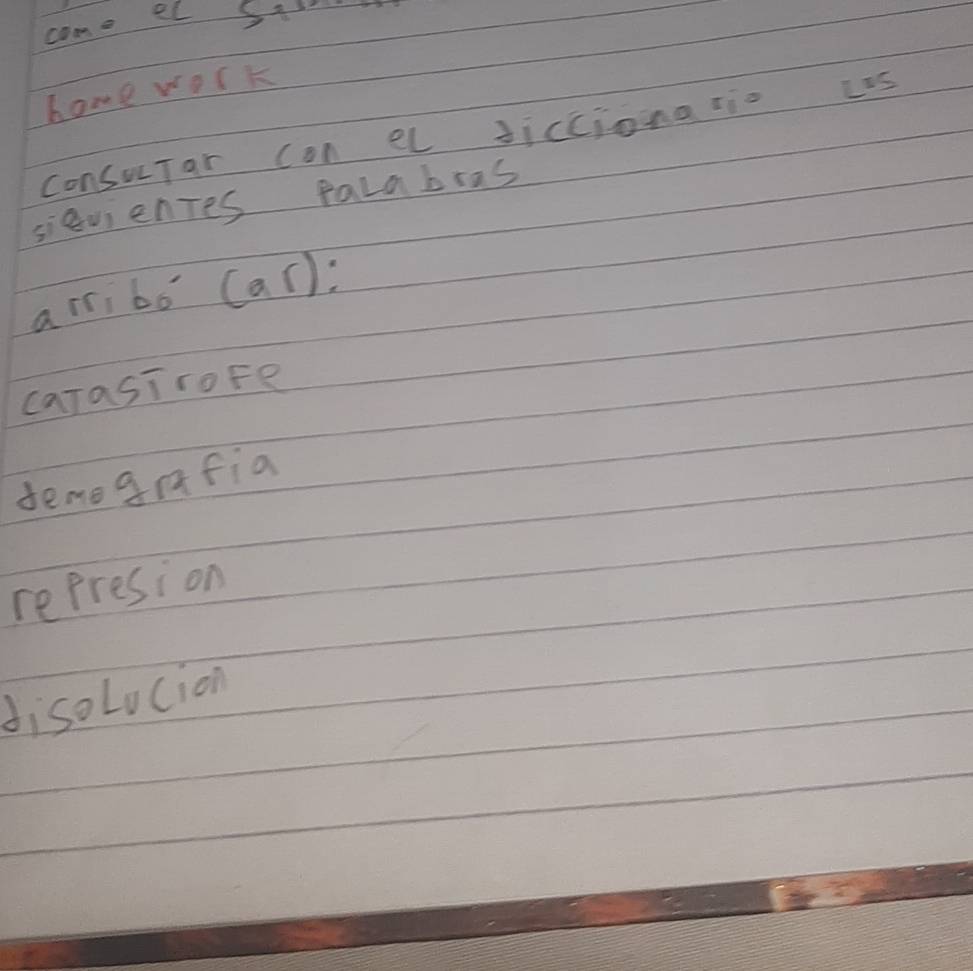 como el
homework
consultar con el diccionario Los
siguientes Palabras
arribó (ar):
catastrofe
demografia
represion
disolucion